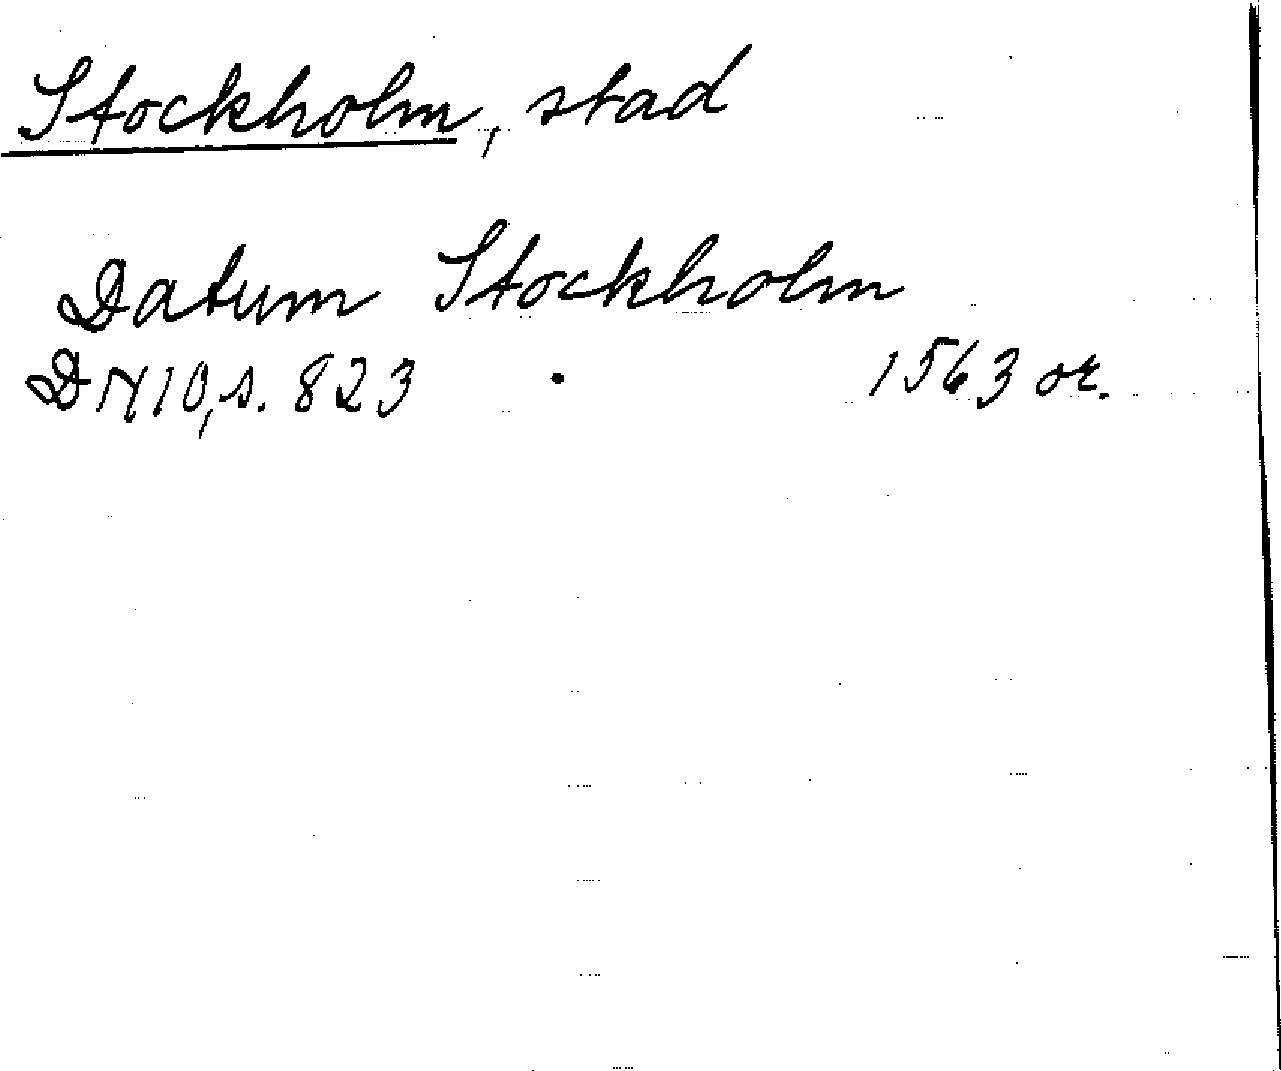 Stockholm, stad
Datum Stockholm
DN 10, s. 823 1563 or.